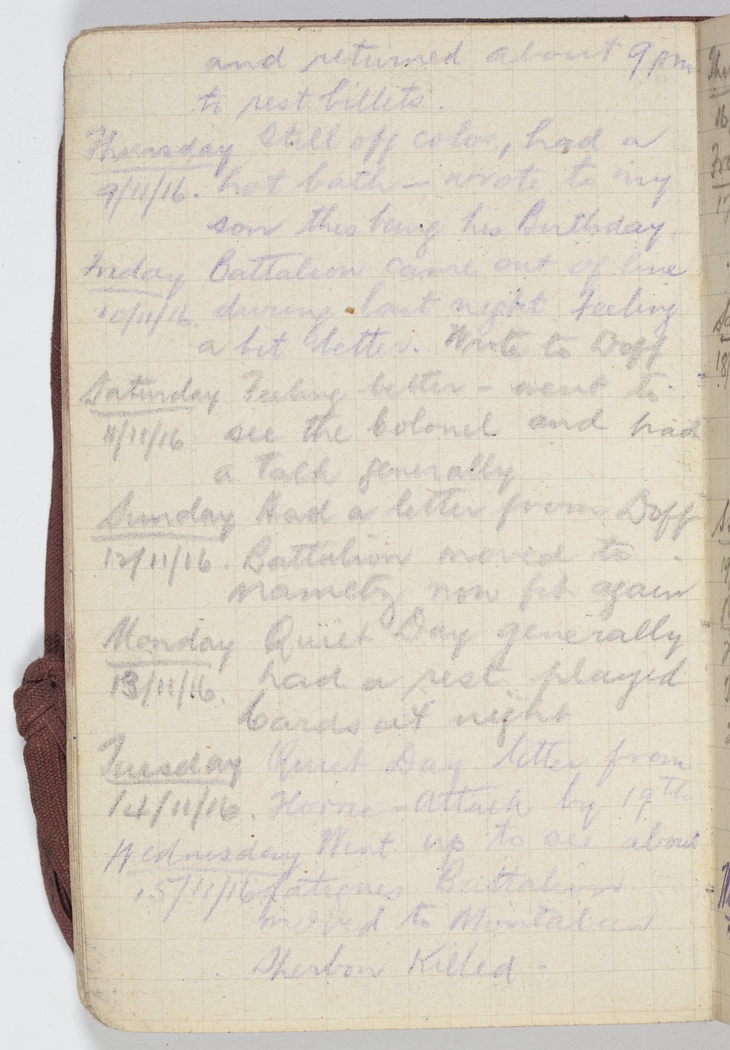 and returned about 9 pm
to rest billets.
Thursday Still off color, had a
9/11/16. hot bath - wrote to my
son this being his Birthday.
Friday Battalion came out of line
10/11/16. during last night Feeling
a bit better. Wrote to Doff
Saturday Feeling better - went to
11/11/16 see the Colonel and had
a talk generally
Sunday Had a letter from Doff
12/11/16. Battalion moved to
Mametz now fit again
Monday Quiet Day generally
13/11/16. had a rest played
Cards at night
Tuesday Quiet Day letter from
14/11/16. Home - Attack by 19th
Wednesday Went up to see about
15/11/16 fatigues Battalion
moved to Montauban
Killed -